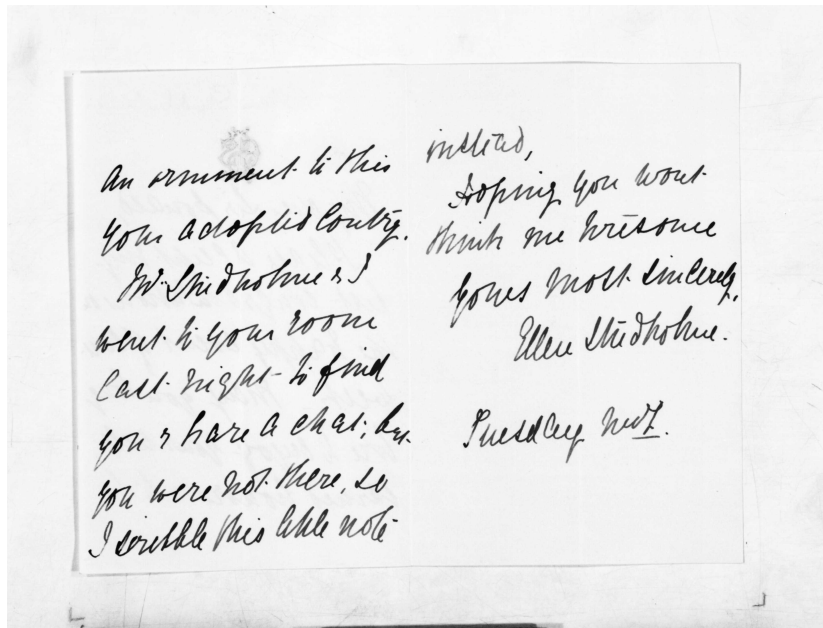 an ornament to this
your adopted Contry.
Mr. Studholme & I
went to your room
last night to find
you & have a chat; but
you were not there, so
I scribble this little note
instead,
Hoping you wont
think me tiresome
yours most sincerely,
Ellen Studholme.
Tuesday